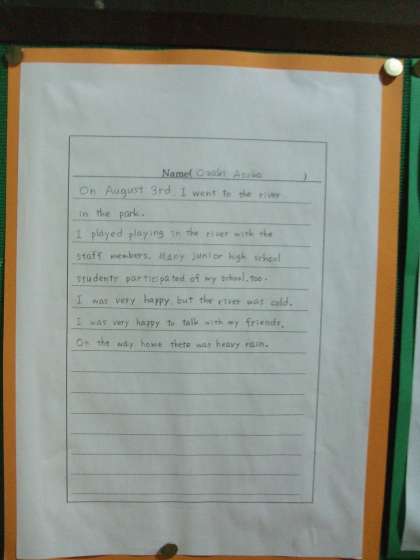 Name( Ozaki Asuka )
On August 3rd I went to the river
in the park.
I played playing in the river with the
staff members. Many junior high school
students participated of my school, too.
I was very happy, but the river was cold.
I was very happy to talk with my friends.
On the way home there was heavy rain.